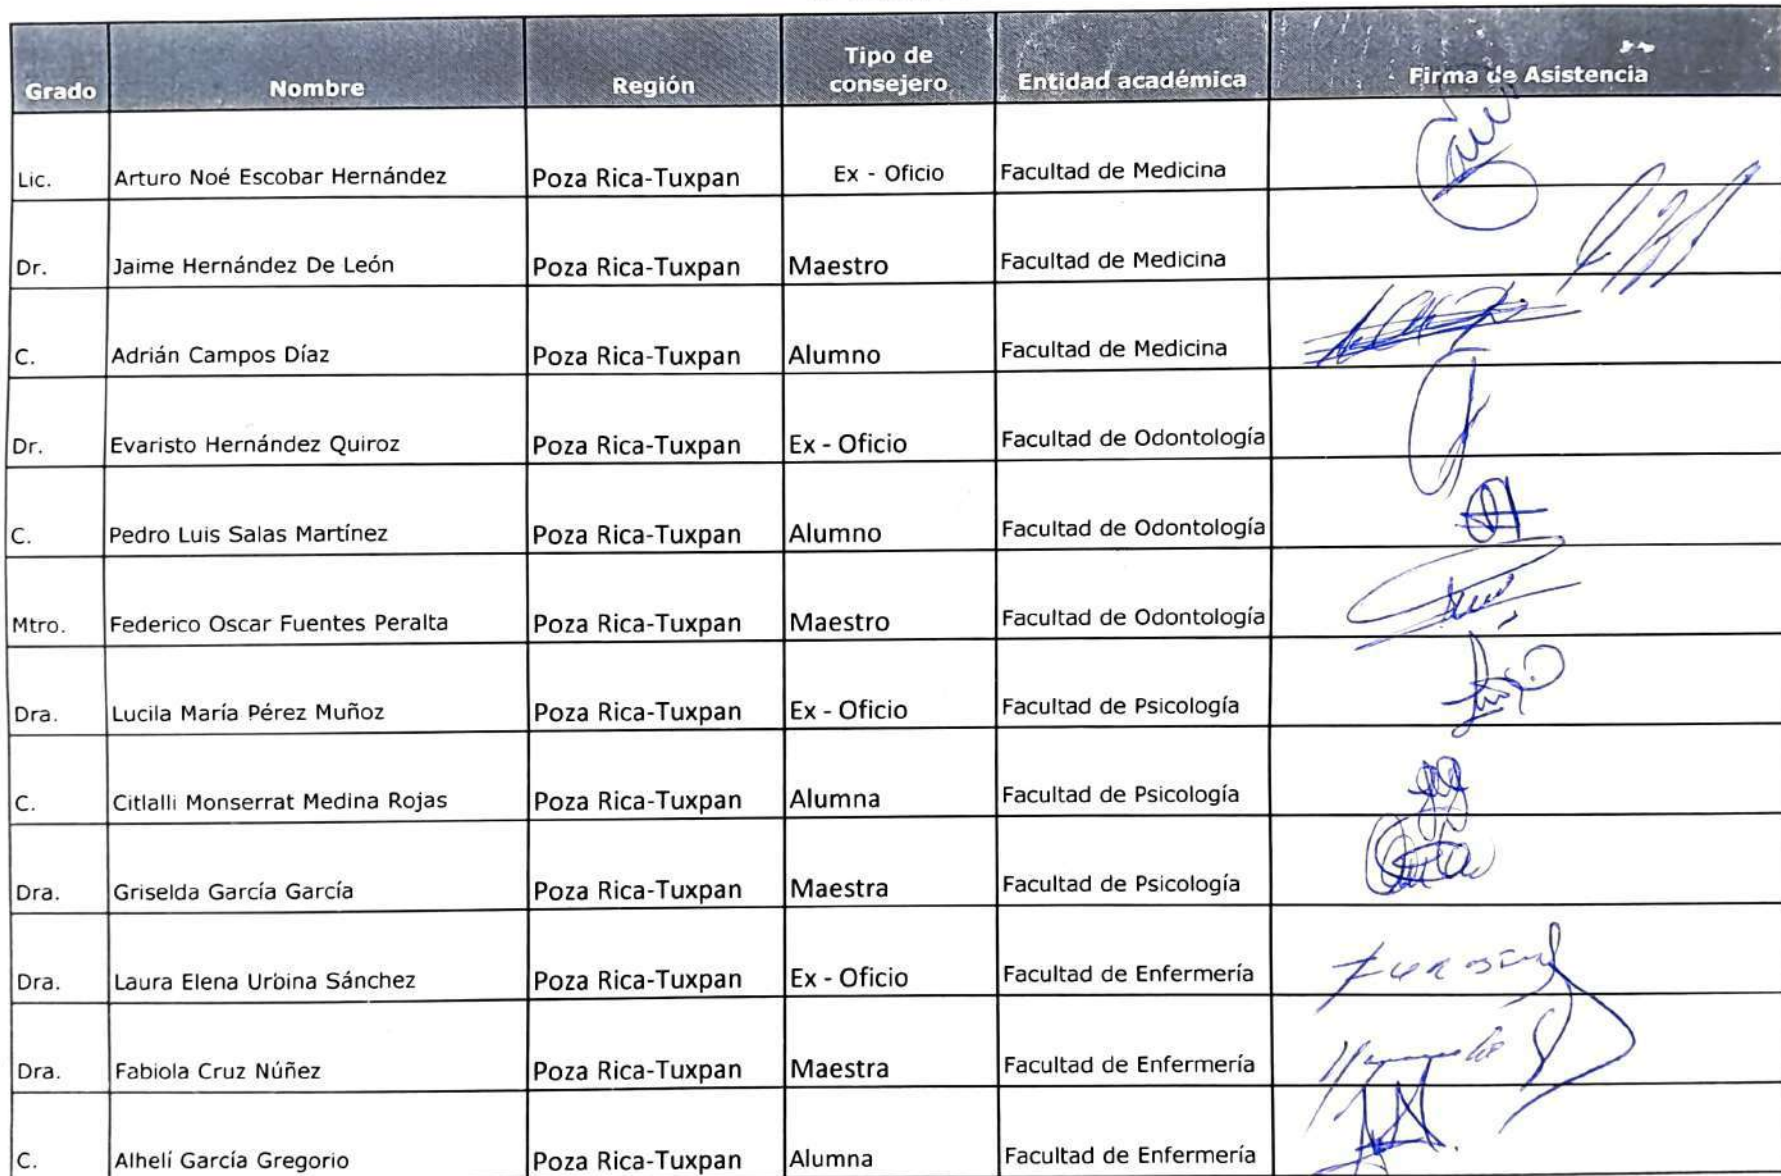 Grado Nombre Región Tipo de consejero Entidad académica Firma de Asistencia
Lic. Arturo Noé Escobar Hernández Poza Rica-Tuxpan Ex - Oficio Facultad de Medicina
Dr. Jaime Hernández De León Poza Rica-Tuxpan Maestro Facultad de Medicina
C. Adrián Campos Díaz Poza Rica-Tuxpan Alumno Facultad de Medicina
Dr. Evaristo Hernández Quiroz Poza Rica-Tuxpan Ex - Oficio Facultad de Odontología
C. Pedro Luis Salas Martínez Poza Rica-Tuxpan Alumno Facultad de Odontología
Mtro. Federico Oscar Fuentes Peralta Poza Rica-Tuxpan Maestro Facultad de Odontología
Dra. Lucila María Pérez Muñoz Poza Rica-Tuxpan Ex - Oficio Facultad de Psicología
C. Citlalli Monserrat Medina Rojas Poza Rica-Tuxpan Alumna Facultad de Psicología
Dra. Griselda García García Poza Rica-Tuxpan Maestra Facultad de Psicología
Dra. Laura Elena Urbina Sánchez Poza Rica-Tuxpan Ex - Oficio Facultad de Enfermería
Dra. Fabiola Cruz Núñez Poza Rica-Tuxpan Maestra Facultad de Enfermería
C. Alhelí García Gregorio Poza Rica-Tuxpan Alumna Facultad de Enfermería